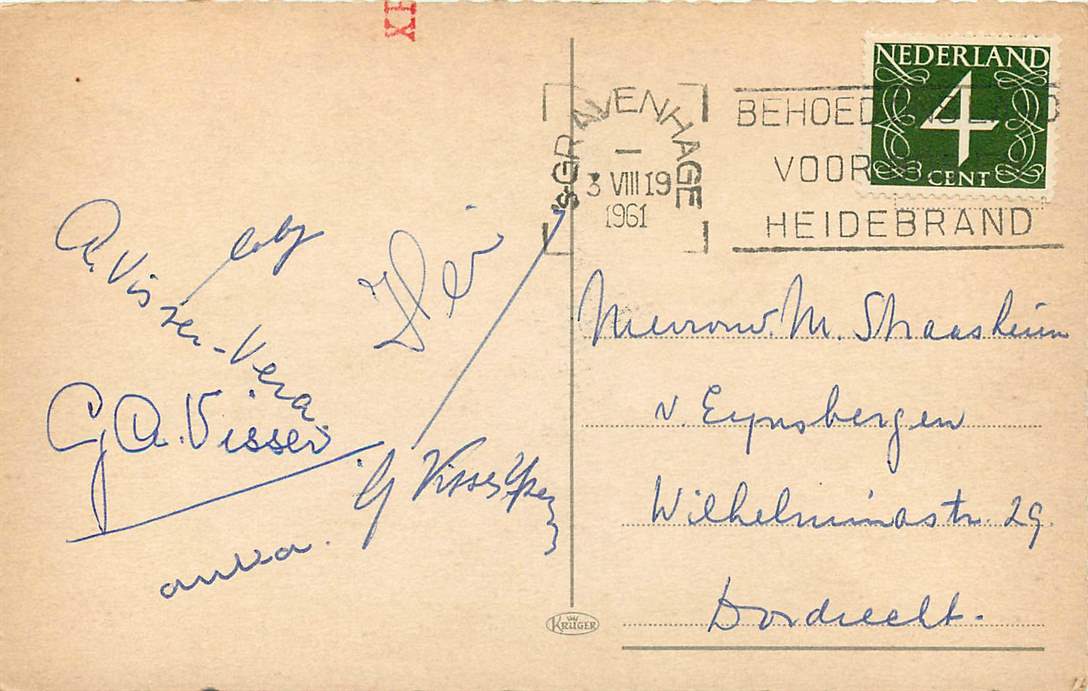 NEDERLAND
4
CENT
'S-GRAVENHAGE
3 VIII 19
1961
BEHOED
VOOR
HEIDEBRAND
A. Visser-Vera
C.A. Visser
G Visser
anka.
Mevrouw. M. Straasheim
v. Eijnsbergen
Wilhelminastr. 29.
Dordrecht.
KRÜGER